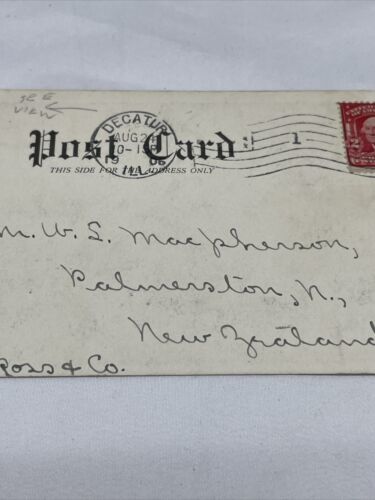 SEE
VIEW
DECATUR
AUG 2
Post Card
1
THIS SIDE FOR THE ADDRESS ONLY
ILL.
2
M. W. S. Macpherson,
Palmerston, N.,
New Zealand
Ross & Co.